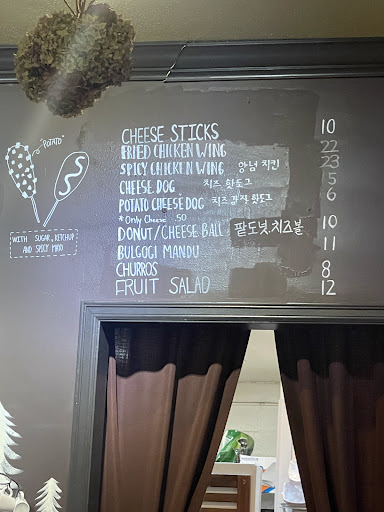 CHEESE STICKS 10
FRIED CHICKEN WING 22
SPICY CHICKEN WING 양념 치킨 23
CHEESE DOG 치즈 핫도그 5
POTATO CHEESE DOG 치즈 감자 핫도그 6
*Only Cheese .50
DONUT/CHEESE BALL 팥도넛.치즈볼 10
BULGOGI MANDU 11
CHURROS 8
FRUIT SALAD 12
"POTATO"
WITH SUGAR, KETCHUP
AND SPICY MAYO